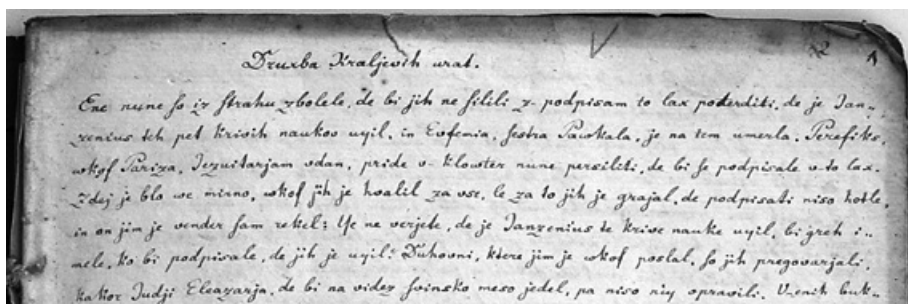 Družba Kraljevih vrat.
Ene nune so iz strahu zbolele, de bi jih ne silili z- podpisam to lax poterditi, de je Jan-
zenius teh pet krivih naukov uyil, in Evfemia, sestra Paskala, je na tem umerla. Perefiks,
wkof Pariza, Jezuitarjam vdan, pride v- klowter nune persiliti, de bi se podpisale v-to lax.
Zdej je blo vse mirno, wkof jih je hvalil za vse, le za to jih je grajal, de podpisati niso hotle,
in on jim je vender sam rekel: Ye ne verjete, de je Janzenius te krive nauke uyil, bi greh i-
mele, ko bi podpisale, de jih je uyil. Duhovni, ktere jim je wkof poslal, so jih pregovarjali,
kakor Judji Eleazarja, de bi na videz svinsko meso jedel, pa niso niy opravili. V-enih buk-